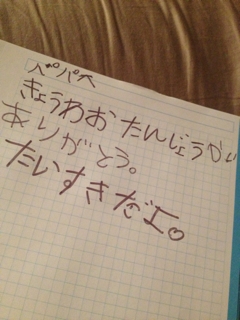 パパへ
きょうわおたんじょうかい
ありがとう。
だいすきだよ。